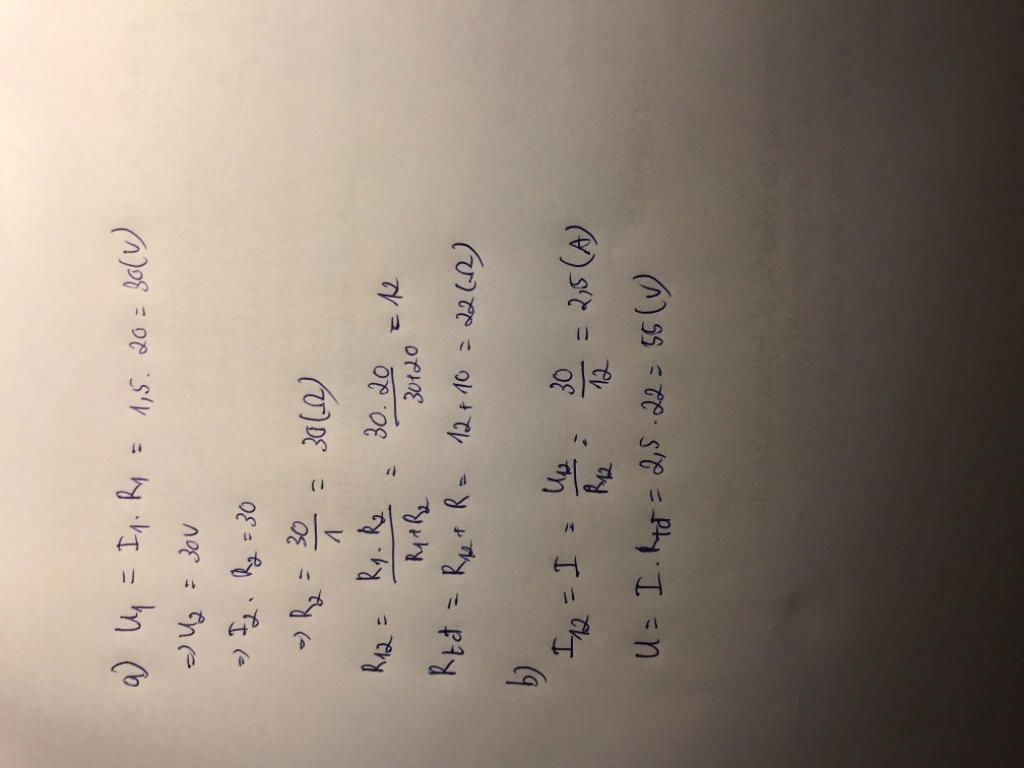 a) U₁ = I₁ . R₁ = 1,5 . 20 = 30(V)
=> U₂ = 30V
=> I₂ . R₂ = 30
=> R₂ = 30/1 = 30(Ω)
R₁₂ = R₁ . R₂ / R₁+R₂ = 30 . 20 / 30+20 = 12
Rtđ = R₁₂ + R = 12 + 10 = 22(Ω)
b)
I₁₂ = I = U₁₂/R₁₂ = 30/12 = 2,5(A)
U = I . Rtđ = 2,5 . 22 = 55(V)